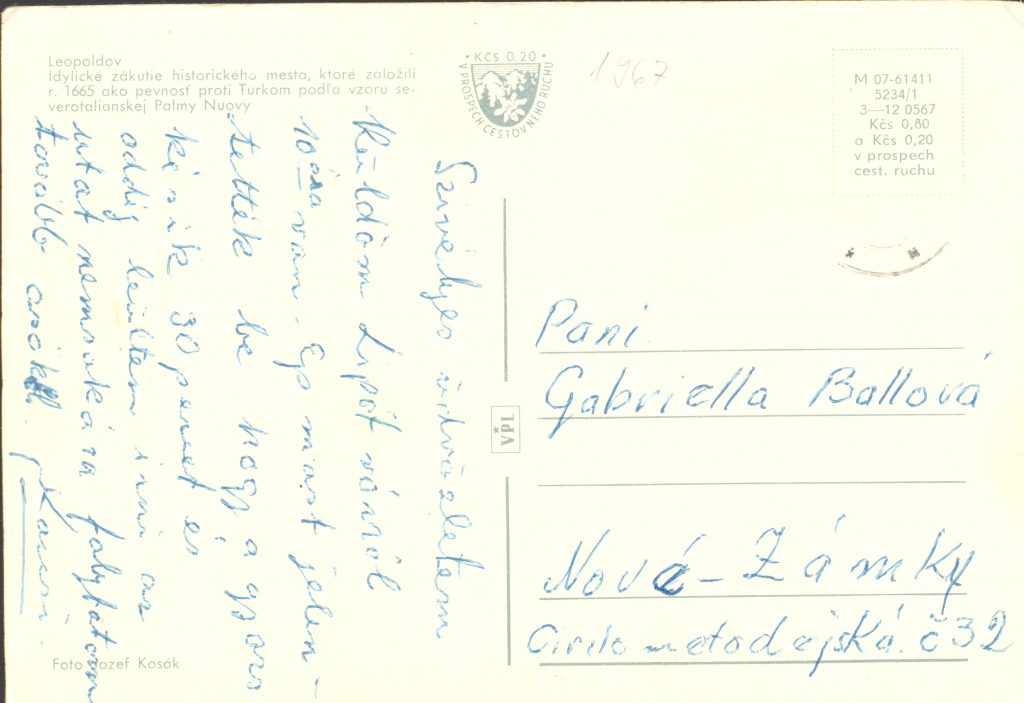 Leopoldov
Idylické zákutie historického mesta, ktoré založili
r. 1665 ako pevnosť proti Turkom podľa vzoru se-
verotalianskej Palmy Nuovy
• KČS 0,20 •
V PROSPECH CESTOVNÉHO RUCHU
1967
M 07-61411
5234/1
3—12 0567
Kčs 0,80
a Kčs 0,20
v prospech
cest. ruchu
Szivélyes üdvözletem
küldöm Lipót várról
10 óra van. Ep most jelen-
tették be hogy a gyors
késik 30 percet és
oddig leültem irni az
utat nemsokára folytatom
tovább csókol
VPL
Pani
Gabriella Ballová
Nové-Zámky
Cirilo metodejská. č 32
Foto Jozef Kosák